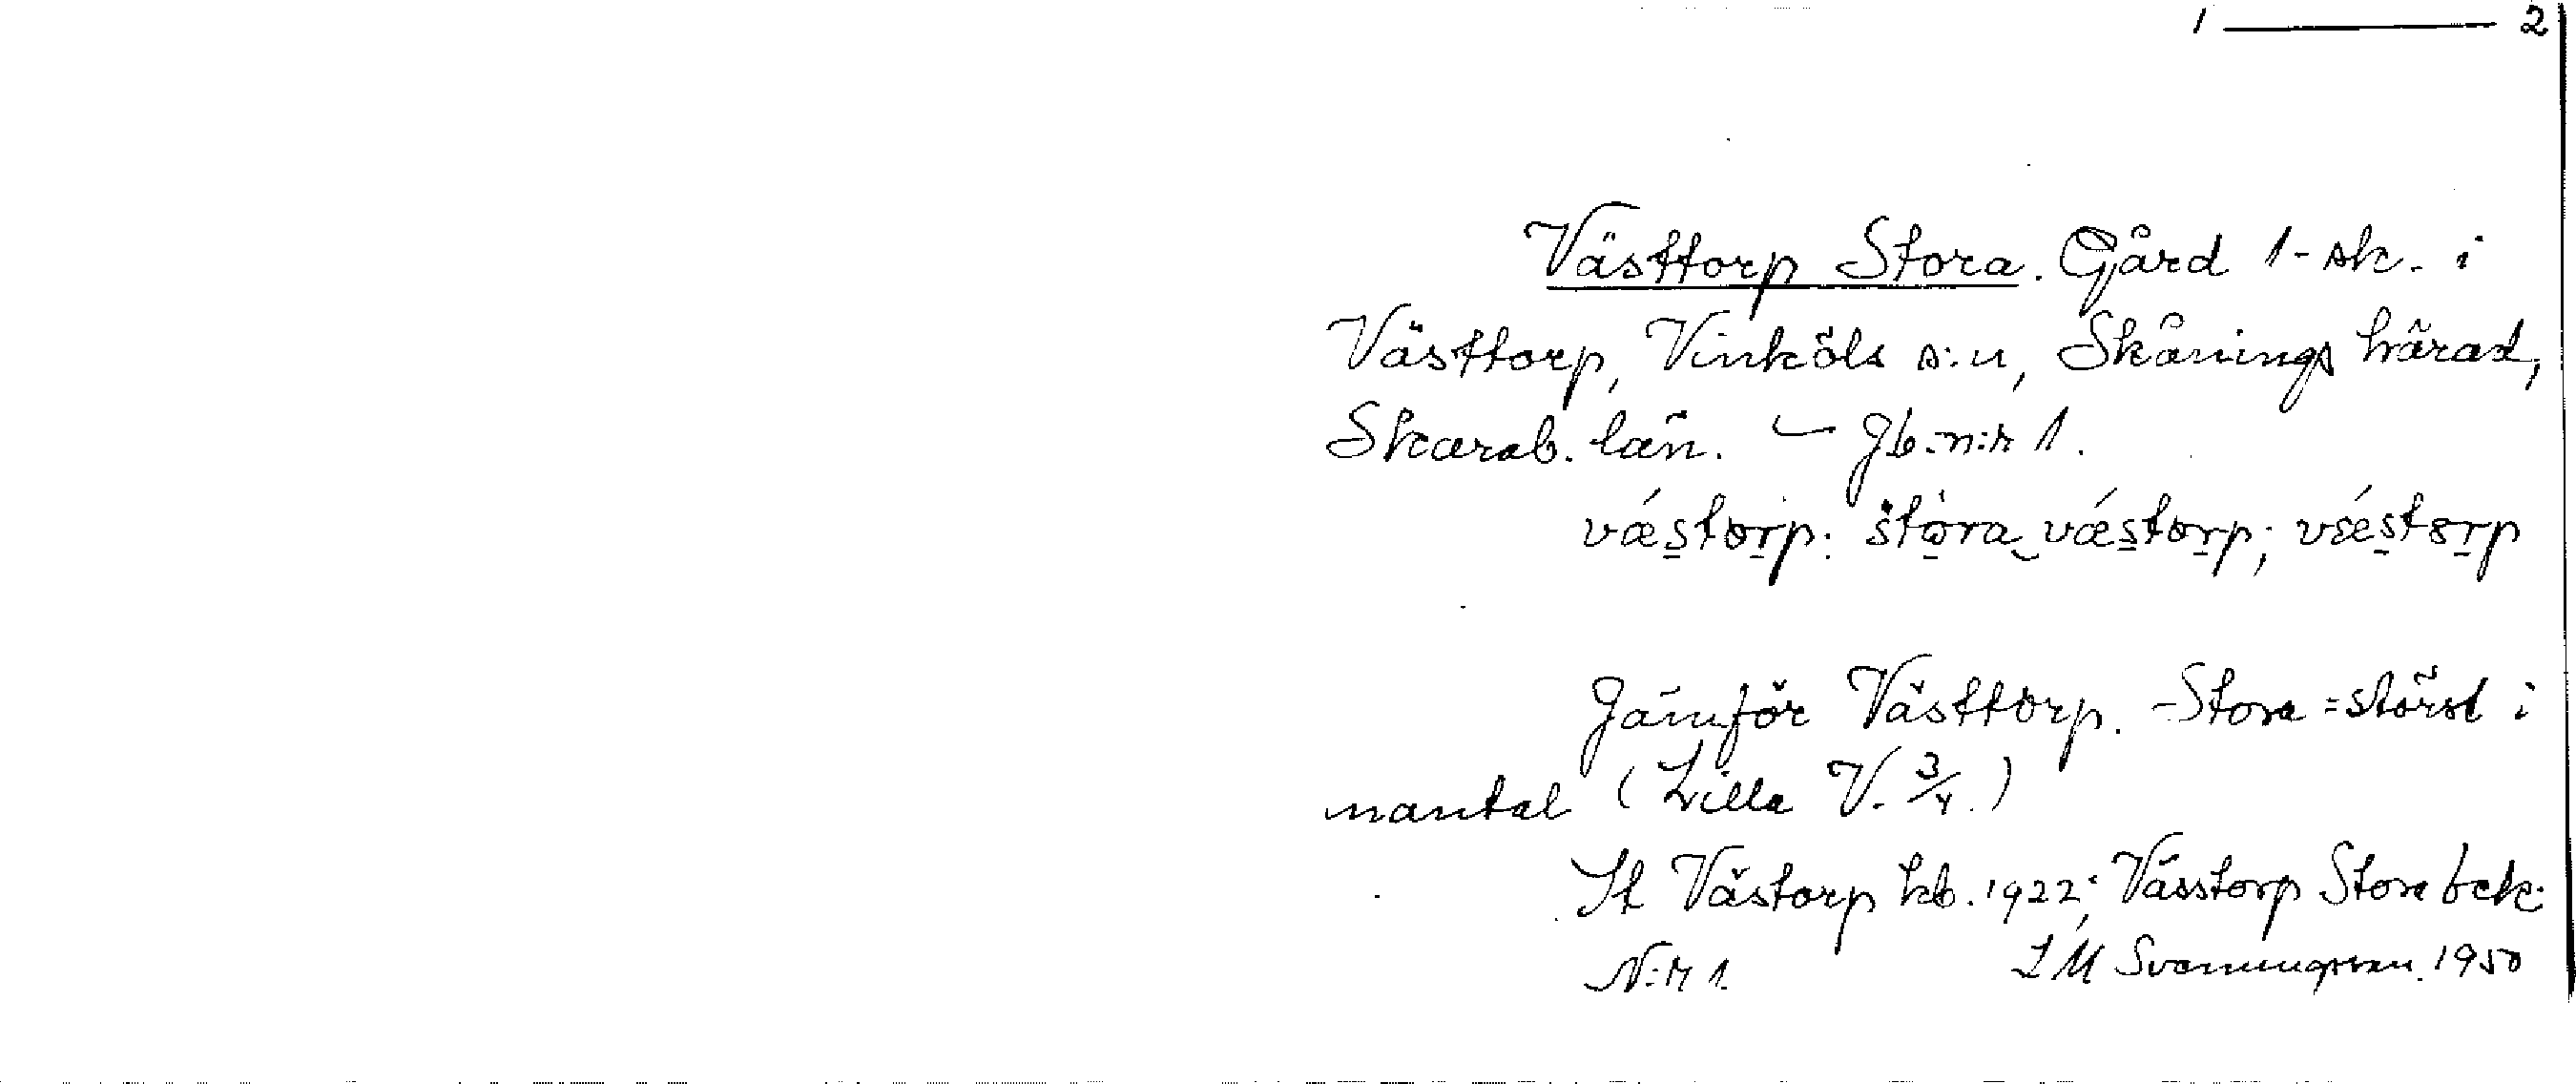 1 — 2
Västtorp Stora. Gård 1-sk. i
Västtorp, Vinköls s:n, Skånings härad,
Skarab. län. — Jb.-n:r 1.
vǽstorp: stòra vǽstorp; vǽstorp
Jämför Västtorp. - Stora = störst i
mantal (Lilla V. 3/4.)
St Västorp kb. 1922; Västorp Stora bek.
N:r 1. LM Svenungsson. 1950